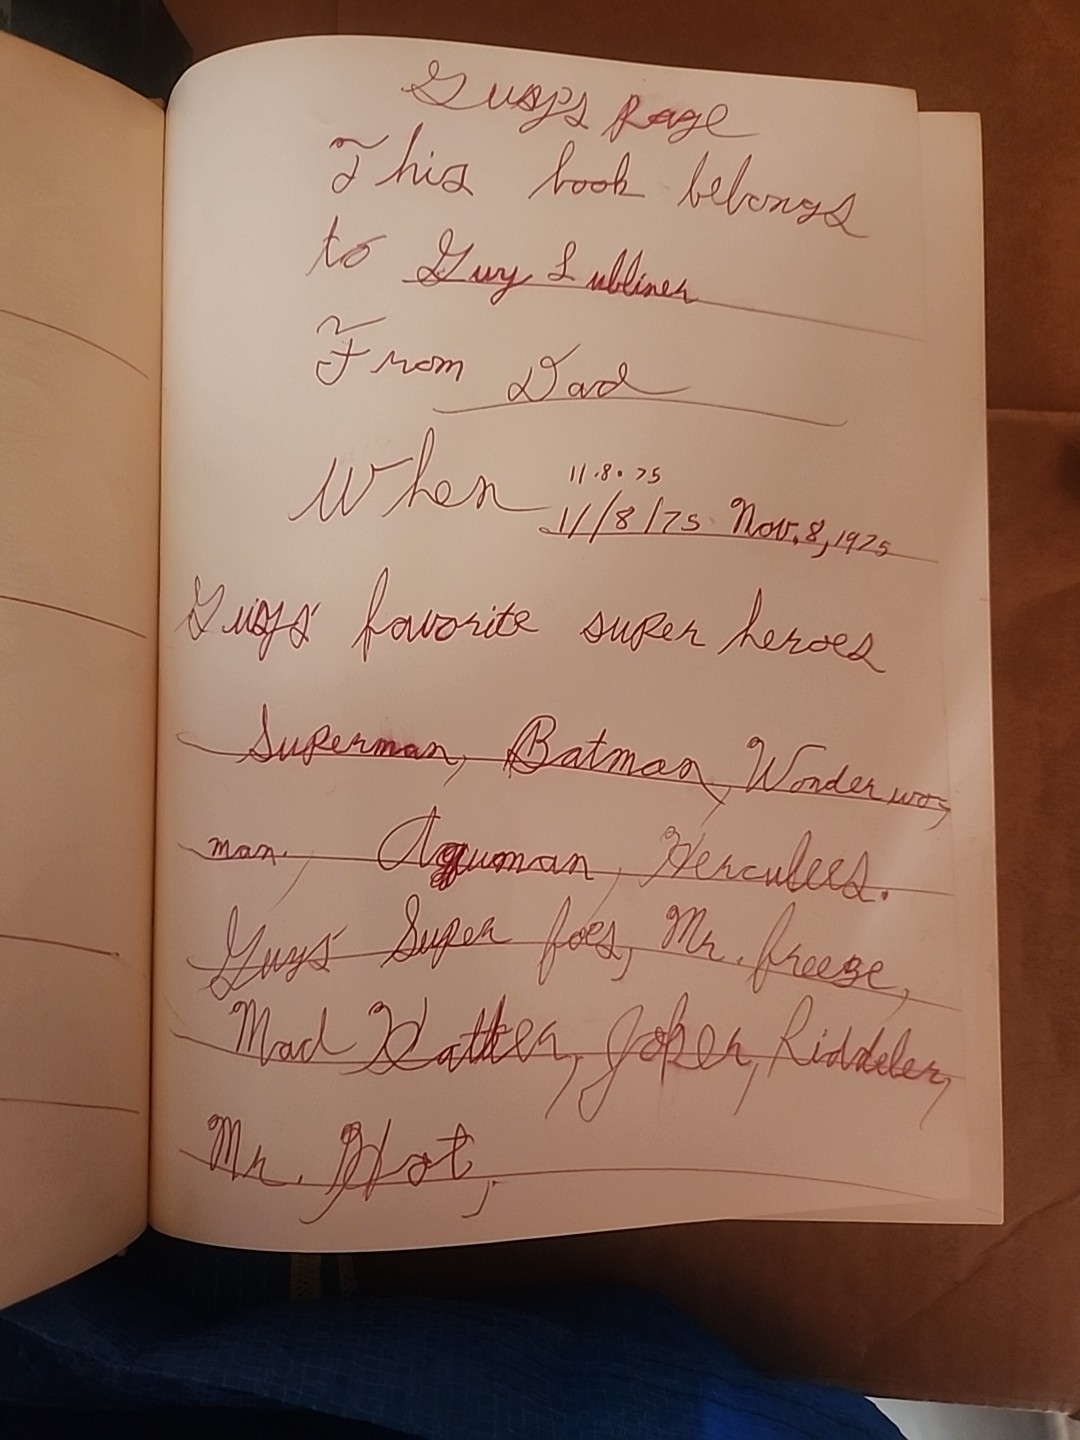 Guys Page
This book belongs
to Guy Lubliner
From Dad
When 11.8.75
11/8/75 Nov. 8, 1975
Guys' favorite super heroes
Superman, Batman, Wonder wo,
man, Aquman, Herculees.
Guys' Super foes, Mr. freeze,
Mad Hatter, Joker, Riddeler,
Mr. Hot,